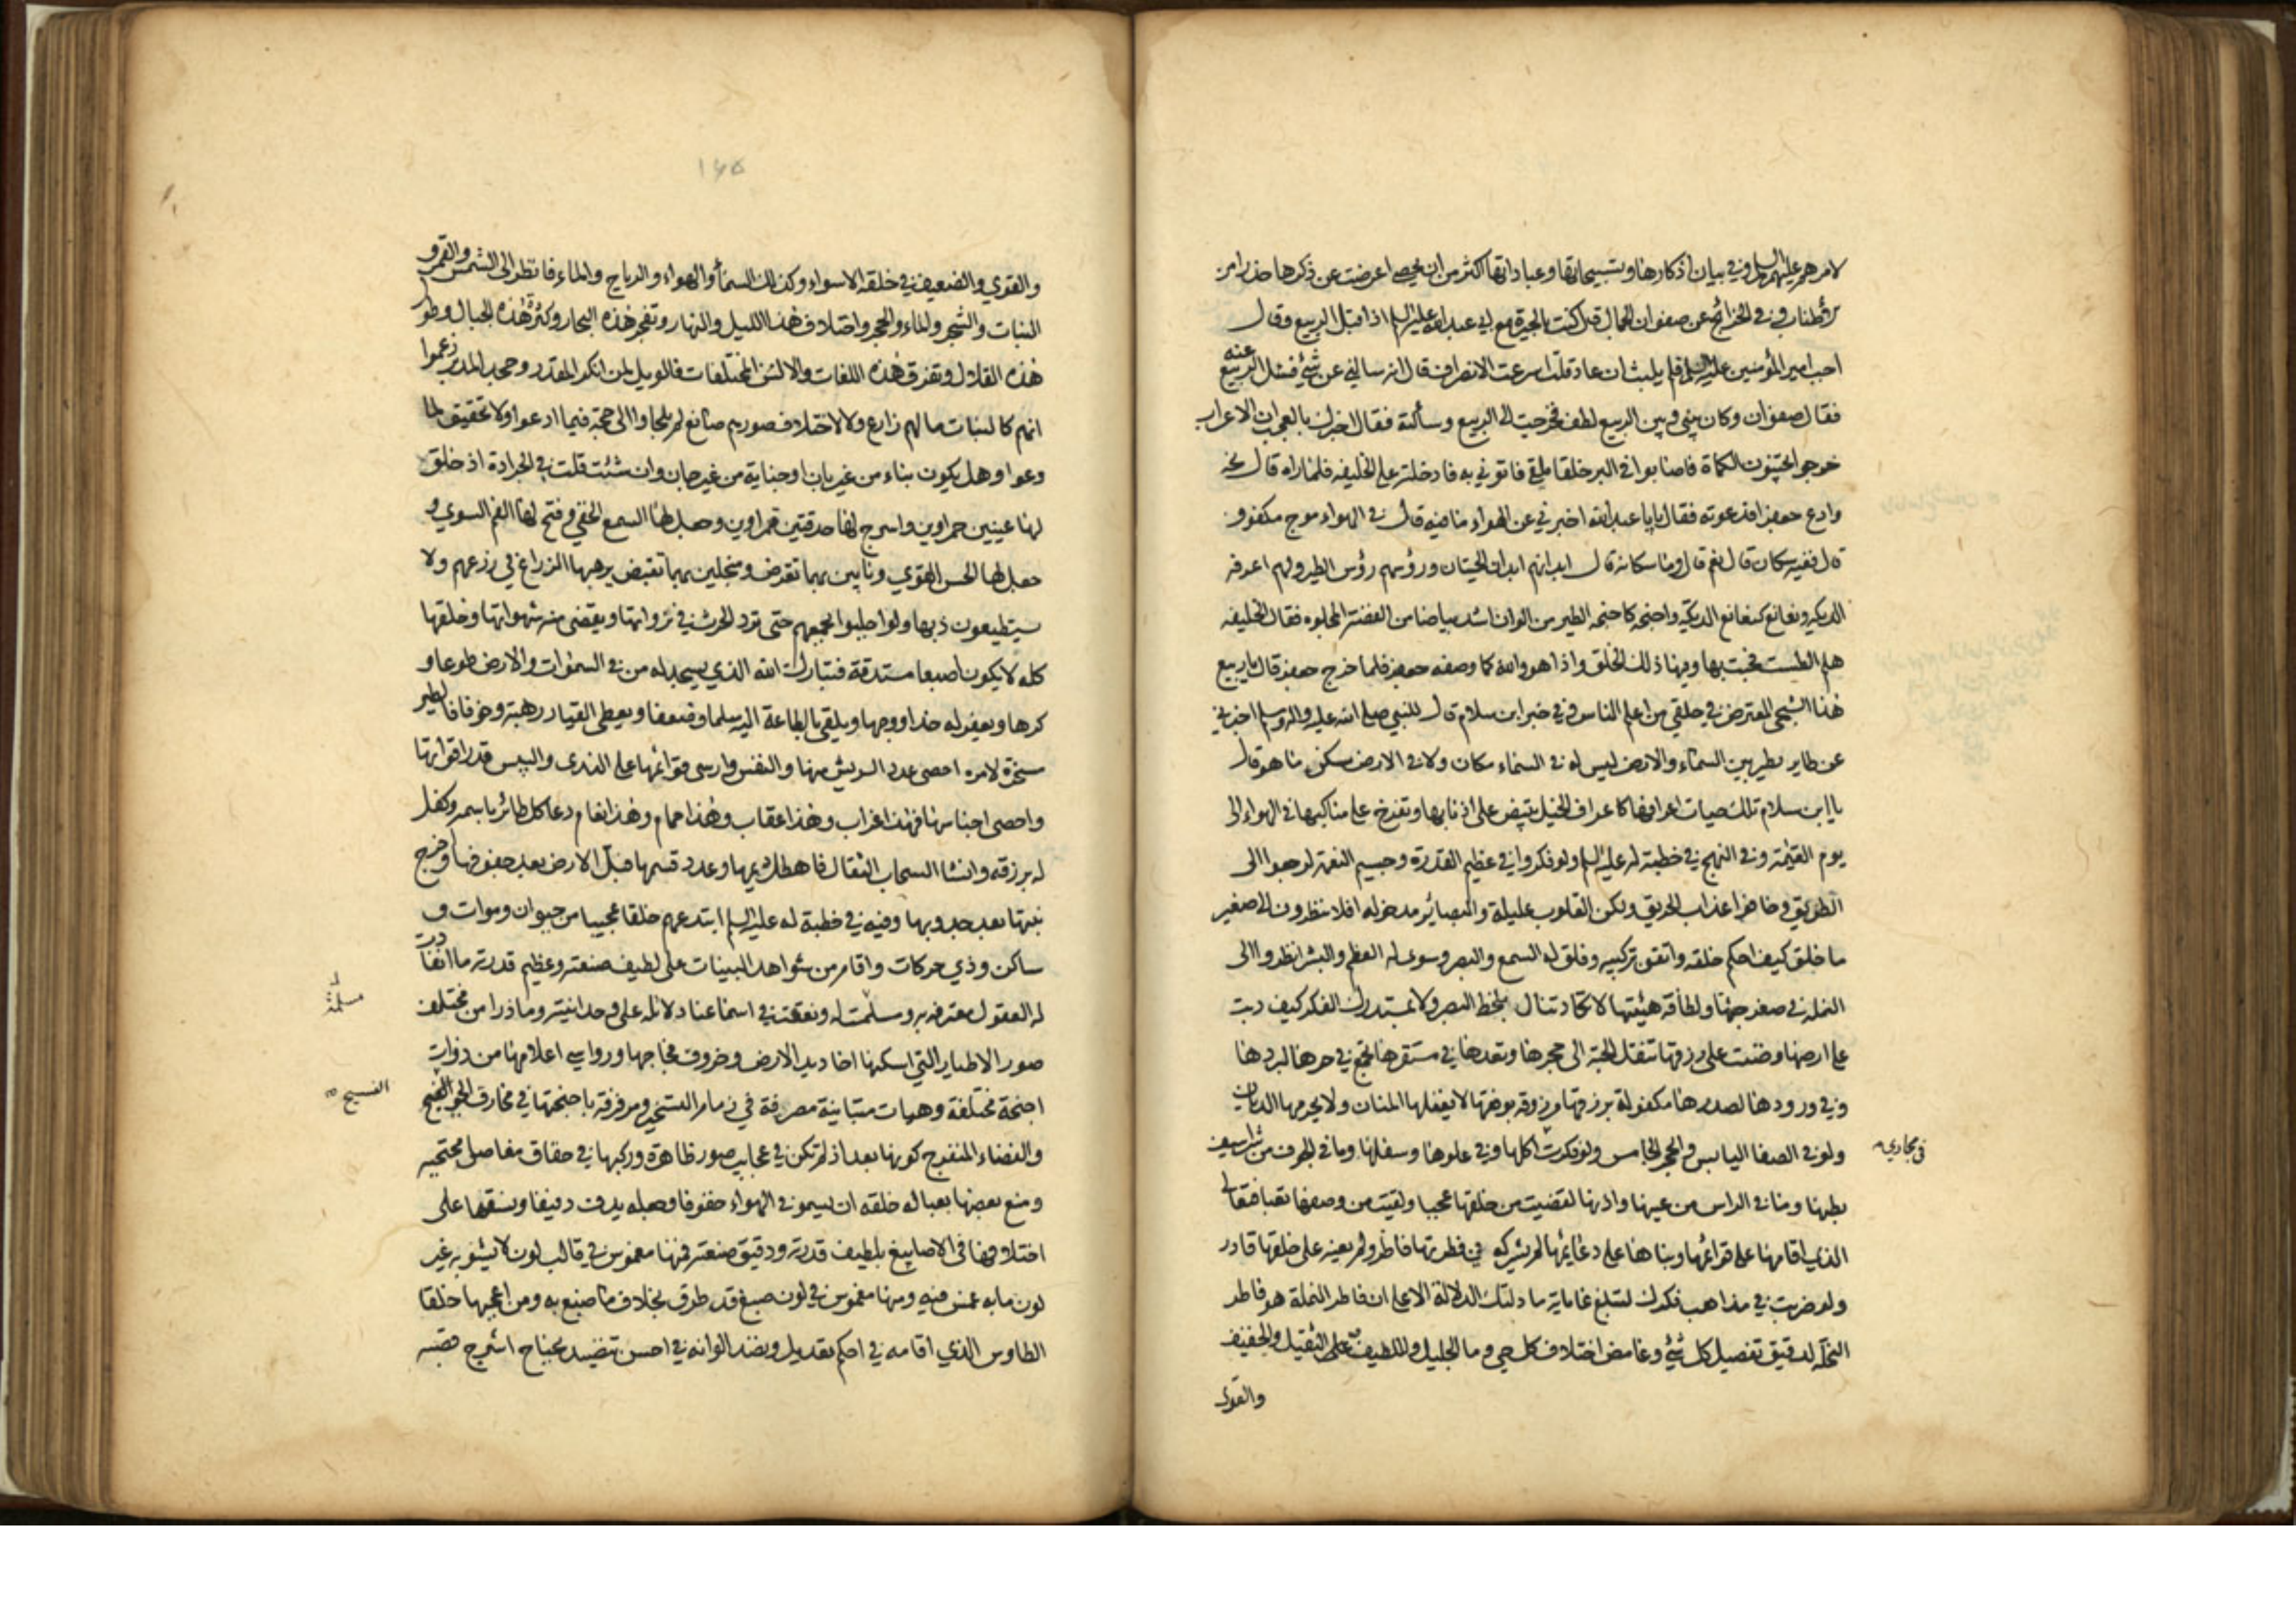 لامرهم عليهم السلام وفي بيان اذكارها وتسبيحاتها وعباداتها اكثر من ان يحصى اعرضت عن ذكرها حذرا من
وفي الخرائج عن صفوان الجمال قال كنت بالحيرة مع ابي عبد الله عليه السلم اذ اقبل الربيع وقال
اجب امير المؤمنين عليه السلم فلم يلبث ان عاد قلت اسرعت الانصراف قال انه سالني عن شئ فسئل الربيع عنه
فقال صفوان وكان بيني وبين الربيع لطف فخرجت الى الربيع وسألته فقال اخبرك بالعجب ان الاعراب
خرجوا يجتنون الكماة فاصابوا في البر خلقا ملقى فاتوني به فادخلته على الخليفه فلما راه قال نحه
وادع جعفرا فدعوته فقال يابا عبد الله اخبرني عن الهواء ما فيه قال في الهواء موج مكفوف
قال ففيه سكان قال نعم قال وما سكانه قال ابدانهم ابدان الحيتان ورؤسهم رؤس الطير ولهم اعرفه
الديكه ونغانغ كنغانغ الديكة واجنحه كاجنحه الطير من الوان اشد بياضا من الفضة المجلوه فقال الخليفه
هلم الطست فجئت بها وفيها ذلك الخلق واذا هو والله كما وصفه جعفر فلما خرج جعفر قال ياربيع
هذا الشجى المعترض في حلقي من اعلم الناس وفي خبر ابن سلام قال للنبي صلى الله عليه واله وسلم اخبرني
عن طاير يطير بين السماء والارض ليس له في السماء مكان ولا في الارض مسكن ما هو قال
يا ابن سلام تلك حيات اعرافها كاعراف الخيل تبيض على اذنابها وتفرخ على مناكبها في الهواء الى
يوم القيمة وفي النهج في خطبة له عليه السلم ولو فكروا في عظيم القدرة وجسيم النعمة لرجعوا الى
الطريق وخافوا عذاب الحريق ولكن القلوب عليلة والبصائر مدخوله افلا ينظرون الى صغير
ما خلق كيف احكم خلقه واتقن تركيبه وفلق له السمع والبصر وسوى له العظم والبشر انظروا الى
النملة في صغر جثتها ولطافة هيئتها لا تكاد تنال بلحظ البصر ولا بمستدرك الفكر كيف دبت
على ارضها وضنت على رزقها تنقل الحبة الى جحرها وتعدها في مستقرها تجمع في حرها لبردها
وفي ورودها لصدرها مكفولة برزقها مرزوقة بوفقها لا يغفلها المنان ولا يحرمها الديان
ولو في الصفا اليابس والحجر الجامس ولو فكرت اكلها وفي علوها وسفلها وما في الجوف من شراسيف
في مجاري
بطنها وما في الراس من عينها واذنها لقضيت من خلقها عجبا ولقيت من وصفها تعبا فتعالى
الذي اقامها على قوائمها وبناها على دعائمها لم يشركه في فطرتها فاطر ولم يعنه على خلقها قادر
ولو ضربت في مذاهب فكرك لتبلغ غاياته ما دلتك الدلالة الا على ان فاطر النملة هو فاطر
النخلة لدقيق تفصيل كل شئ وغامض اختلاف كل حي وما الجليل واللطيف والثقيل والخفيف
والقوي
١٦٥
والقوي والضعيف في خلقه الا سواء وكذلك السماء والهواء والرياح والماء فانظر الى الشمس والقمر و
النبات والشجر والماء والحجر واختلاف هذا الليل والنهار وتفجر هذه البحار وكثرة هذه الجبال وطول
هذه القلال وتفرق هذه اللغات والالسن المختلفات فالويل لمن انكر المقدر وجحد المدبر زعموا
انهم كالنبات ما لهم زارع ولا لاختلاف صورهم صانع لم يلجاوا الى حجة فيما ادعوا ولا تحقيق لما
وعوا وهل يكون بناء من غير بان او جناية من غير جان وان شئت قلت في الجرادة اذ خلق
لها عينين حمراوين واسرج لها حدقتين قمراوين وجعل لها السمع الخفي وفتح لها الفم السوي و
جعل لها الحس القوي ونابين بهما تقرض ومنجلين بهما تقبض يرهبها الزراع في زرعهم ولا
يستطيعون ذبها ولو اجلبوا بجمعهم حتى ترد الحرث في نزواتها وتقضي منه شهواتها وخلقها
كله لا يكون اصبعا مستدقة فتبارك الله الذي يسجد له من في السموات والارض طوعا و
كرها ويعفر له خدا ووجها ويلقي بالطاعة اليه سلما وضعفا ويعطي القياد رهبة وخوفا فالطير
مسخرة لامره احصى عدد الريش منها والنفس وارسى قوائمها على الندى واليبس قدر اقواتها
واحصى اجناسها فهذا غراب وهذا عقاب وهذا حمام وهذا نعام دعا كل طائر باسمه وكفل
له برزقه وانشا السحاب الثقال فاهطل ديمها وعدد قسمها فبل الارض بعد جفوفها واخرج
نبتها بعد جدوبها وفيه في خطبة له عليه السلم ابتدعهم خلقا عجيبا من حيوان وموات و
ساكن وذي حركات واقام من شواهد البينات على لطيف صنعته وعظيم قدرته ما انقادت
له العقول معترفه به ومسلمت له ونعقت في اسماعنا دلائله على وحدانيته وما ذرا من مختلف
له
مسلمة
صور الاطيار التي اسكنها اخاديد الارض وخروق فجاجها ورواسي اعلامها من ذوات
اجنحة مختلفة وهيات متباينة مصرفة في زمام التسخير ومرفرفة باجنحتها في مخارق الجو الفسيح
الفسيح
والفضاء المنفرج كونها بعد اذ لم تكن في عجايب صور ظاهرة وركبها في حقاق مفاصل محتجبه
ومنع بعضها بعباله خلقه ان يسمو في الهواء خفوفا وجعله يدف دفيفا ونسقها على
اختلافها في الاصابيغ بلطيف قدرته ودقيق صنعته فمنها مغموس في قالب لون لا يشوبه غير
لون ما به غمس فيه ومنها مغموس في لون صبغ قد طوق بخلاف ما صبغ به ومن اعجبها خلقا
الطاوس الذي اقامه في احكم تعديل ونضد الوانه في احسن تنضيد بجناح اشرج قصبه